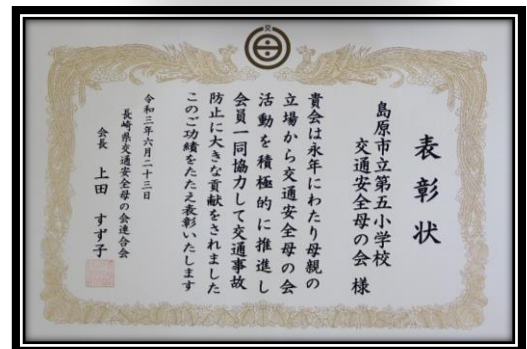 表彰状
島原市立第五小学校
交通安全母の会 様
貴会は永年にわたり母親の
立場から交通安全母の会
活動を積極的に推進し
会員一同協力して交通事故
防止に大きな貢献をされました
このご功績をたたえ表彰いたします
令和三年六月二十三日
長崎県交通安全母の会連合会
会長 上田 すず子